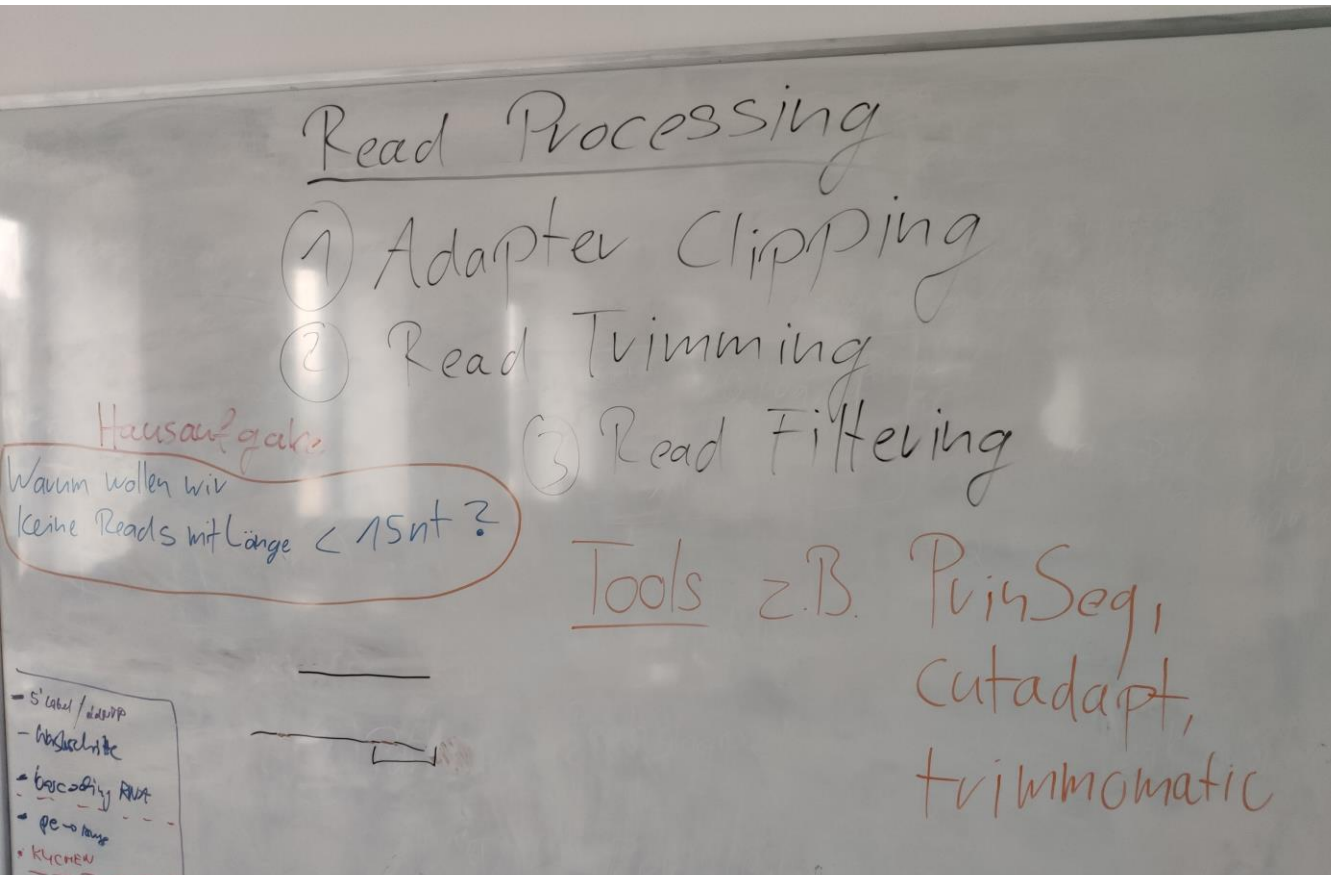 Read Processing
1 Adapter Clipping
2 Read Trimming
3 Read Filtering
Hausaufgabe
Warum wollen wir
keine Reads mit Länge < 15nt ?
Tools z.B. PrinSeq,
cutadapt,
trimmomatic
- 5' Label /
-
- barcoding RNA
-
• KUCHEN